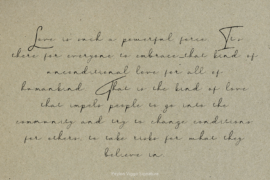 Love is such a powerful force. It's
there for everyone to embrace-that kind of
unconditional love for all of
humankind. That is the kind of love
that impels people to go into the
community and try to change conditions
for others, to take risks for what they
believe in.